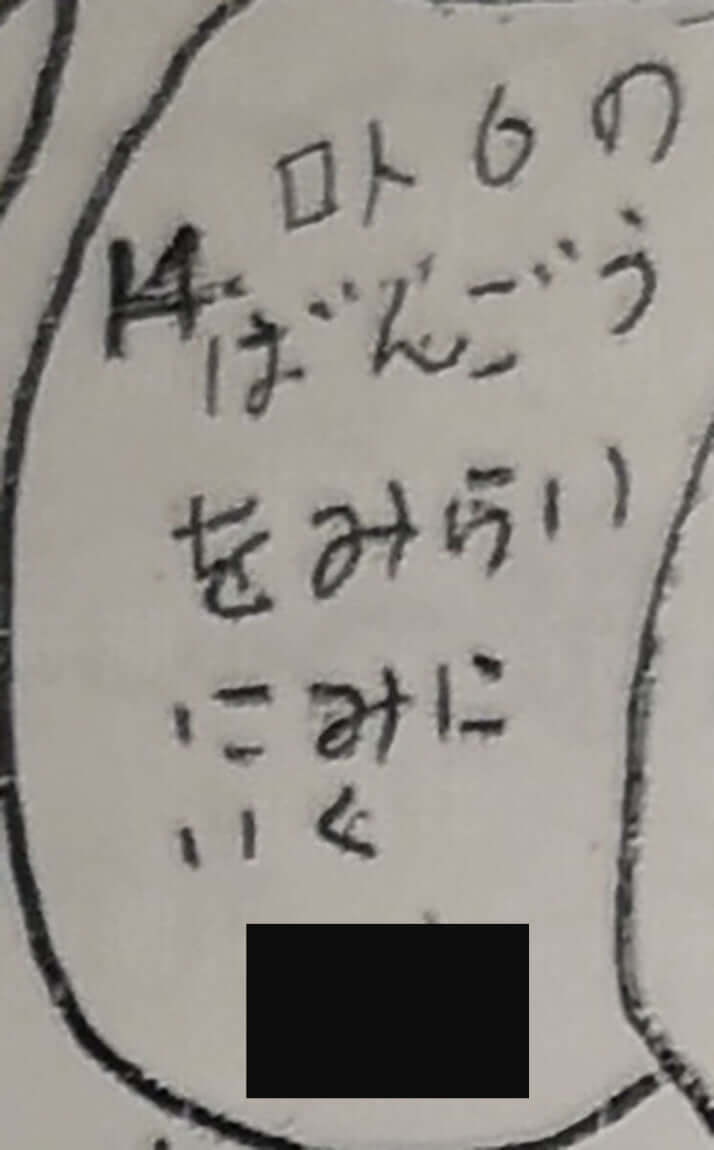 ロト6の
14.ばんごう
をみらい
にみに
いく